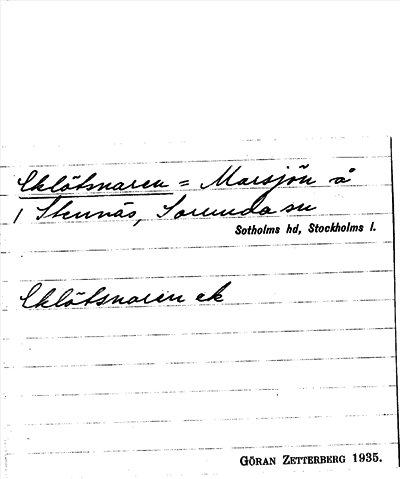 Eklötsnaren = Marsjön å
1 Stennäs, Sorunda sn
Sotholms hd, Stockholms l.
Eklötsnaren ek
GÖRAN ZETTERBERG 1935.